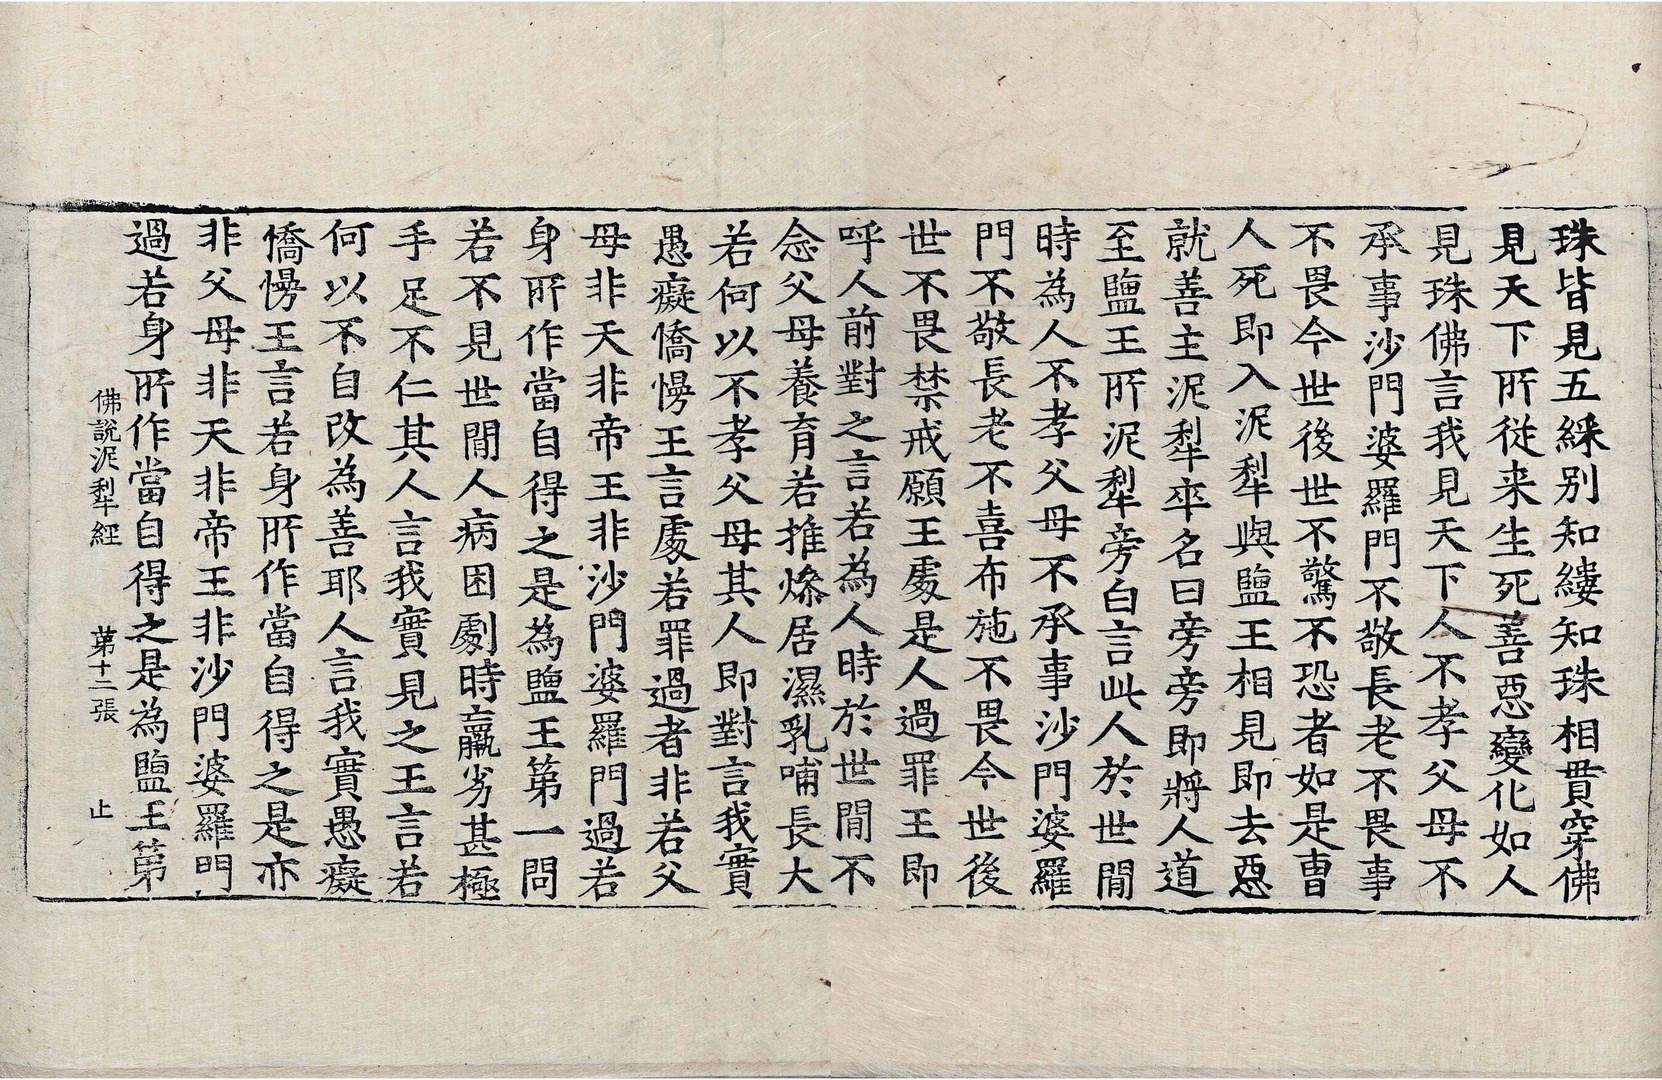 珠皆見五綵別知縷知珠相貫穿佛
見天下所從来生死善惡變化如人
見珠佛言我見天下人不孝父母不
承事沙門婆羅門不敬長老不畏事
不畏今世後世不驚不恐者如是曹
人死即入泥犁與鹽王相見即去惡
就善主泥犁卒名曰旁旁即將人道
至鹽王所泥犁旁白言此人於世閒
時為人不孝父母不承事沙門婆羅
門不敬長老不喜布施不畏今世後
世不畏禁戒願王處是人過罪王即
呼人前對之言若為人時於世閒不
念父母養育若推燥居濕乳哺長大
若何以不孝父母其人即對言我實
愚癡憍慢王言處若罪過者非若父
母非天非帝王非沙門婆羅門過若
身所作當自得之是為鹽王第一問
若不見世閒人病困劇時羸劣甚極
手足不仁其人言我實見之王言若
何以不自改為善耶人言我實愚癡
憍慢王言若身所作當自得之是亦
非父母非天非帝王非沙門婆羅門
過若身所作當自得之是為鹽王第
佛說泥犁經　第十二張　止